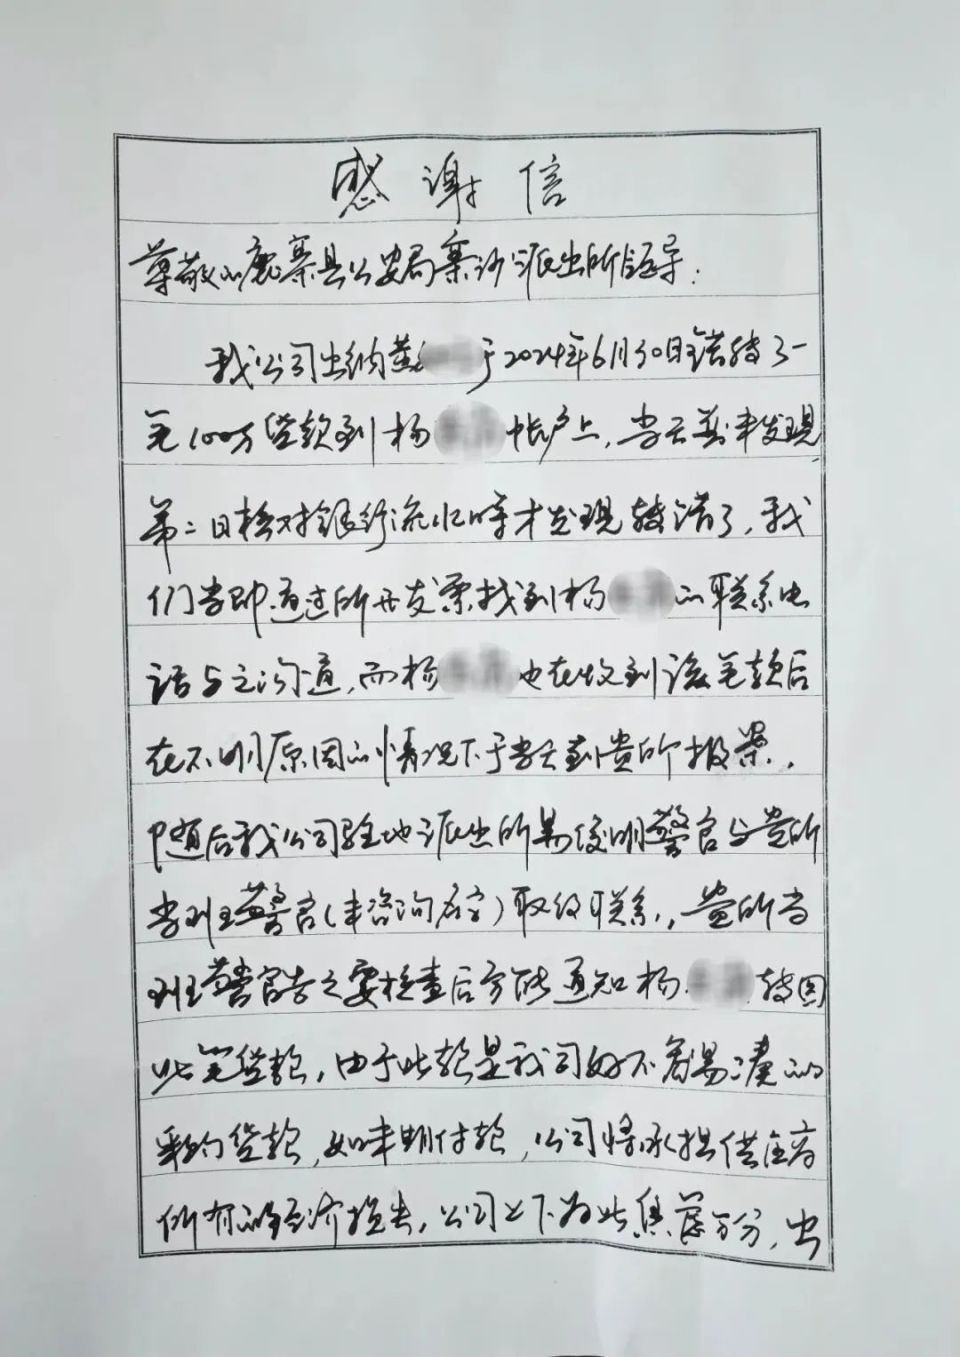 感谢信
尊敬的鹿寨县公安局寨沙派出所领导：
我公司出纳黄 于2024年6月30日错转了一
笔100万货款到杨 帐户上，当天并未发现
第二日核对银行流水时才发现转错了，我
们当即通过所开发票找到杨 的联系电
话与之沟通，而杨 也在收到该笔款后
在不明原因的情况下于当天到贵所报案，
随后我公司驻地派出所易俊明警官与贵所
当班警官(未咨询名字)取得联系，贵所当
班警官告之要检查后方能通知杨 转回
此笔货款，由于此款是我司好不容易凑的
采购货款，如未期付款，公司将承担供应商
所有的经济损失，公司上下为此焦虑万分，出